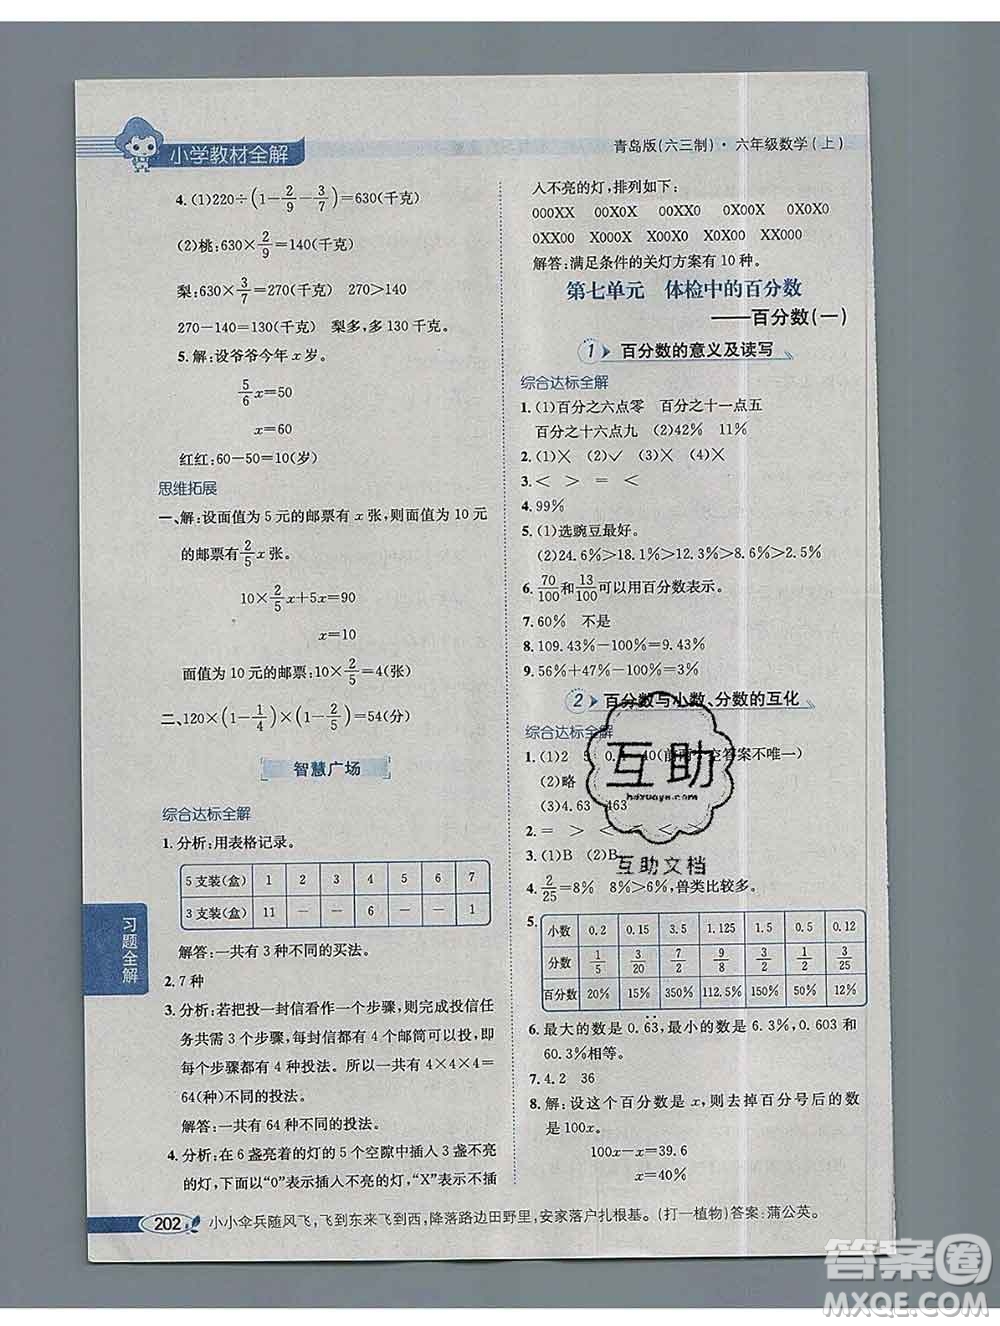 小学教材全解
青岛版(六三制)·六年级数学(上)
4.(1)220÷(1-2/9-3/7)=630(千克)
(2)桃:630×2/9=140(千克)
梨:630×3/7=270(千克) 270>140
270-140=130(千克) 梨多,多130千克
5.解:设爷爷今年x岁。
5/6x=50
x=60
红红:60-50=10(岁)
思维拓展
一、解:设面值为5元的邮票有x张,则面值为10元
的邮票有2/5x张。
10×2/5x+5x=90
x=10
面值为10元的邮票:10×2/5=4(张)
二、120×(1-1/4)×(1-2/5)=54(分)
智慧广场
综合达标全解
1.分析:用表格记录。
5支装(盒) 1 2 3 4 5 6 7
3支装(盒) 11 — — 6 — — 1
解答:一共有3种不同的买法。
2.7种
3.分析:若把投一封信看作一个步骤,则完成投信任
务共需3个步骤,每封信都有4个邮筒可以投,即
每个步骤都有4种投法。所以一共有4×4×4=
64(种)不同的投法。
解答:一共有64种不同的投法。
4.分析:在6盏亮着的灯的5个空隙中插入3盏不亮
的灯,下面以"0"表示插入不亮的灯,"X"表示不插
人不亮的灯,排列如下:
000XX 00X0X 00XX0 0X00X 0X0X0
0XX00 X000X X00X0 X0X00 XX000
解答:满足条件的关灯方案有10种。
第七单元 体检中的百分数
——百分数(一)
1 百分数的意义及读写
综合达标全解
1.(1)百分之六点零 百分之十一点五
百分之十六点九 (2)42% 11%
2.(1)× (2)✓ (3)× (4)×
3.< > = <
4.99%
5.(1)选豌豆最好。
(2)24.6%>18.1%>12.3%>8.6%>2.5%
6.70/100和13/100可以用百分数表示。
7.60% 不是
8.109.43%-100%=9.43%
9.56%+47%-100%=3%
2 百分数与小数、分数的互化
综合达标全解
(2)略
(3)4.63 463
2.= > < =
3.(1)B (2)B
4.2/25=8% 8%>6%,兽类比较多。
5.
小数 0.2 0.15 3.5 1.125 1.5 0.5 0.12
分数 1/5 3/20 7/2 9/8 3/2 1/2 3/25
百分数 20% 15% 350% 112.5% 150% 50% 12%
6.最大的数是0.6̇3̇,最小的数是6.3%,0.603和
60.3%相等。
7.4.2 36
8.解:设这个百分数是x,则去掉百分号后的数
是100x。
100x-x=39.6
x=40%
互助
hdzuoye.com
互助文档
习题全解
202
小小伞兵随风飞,飞到东来飞到西,降落路边田野里,安家落户扎根基。(打一植物)答案:蒲公英。
答案圈
MXQE.COM